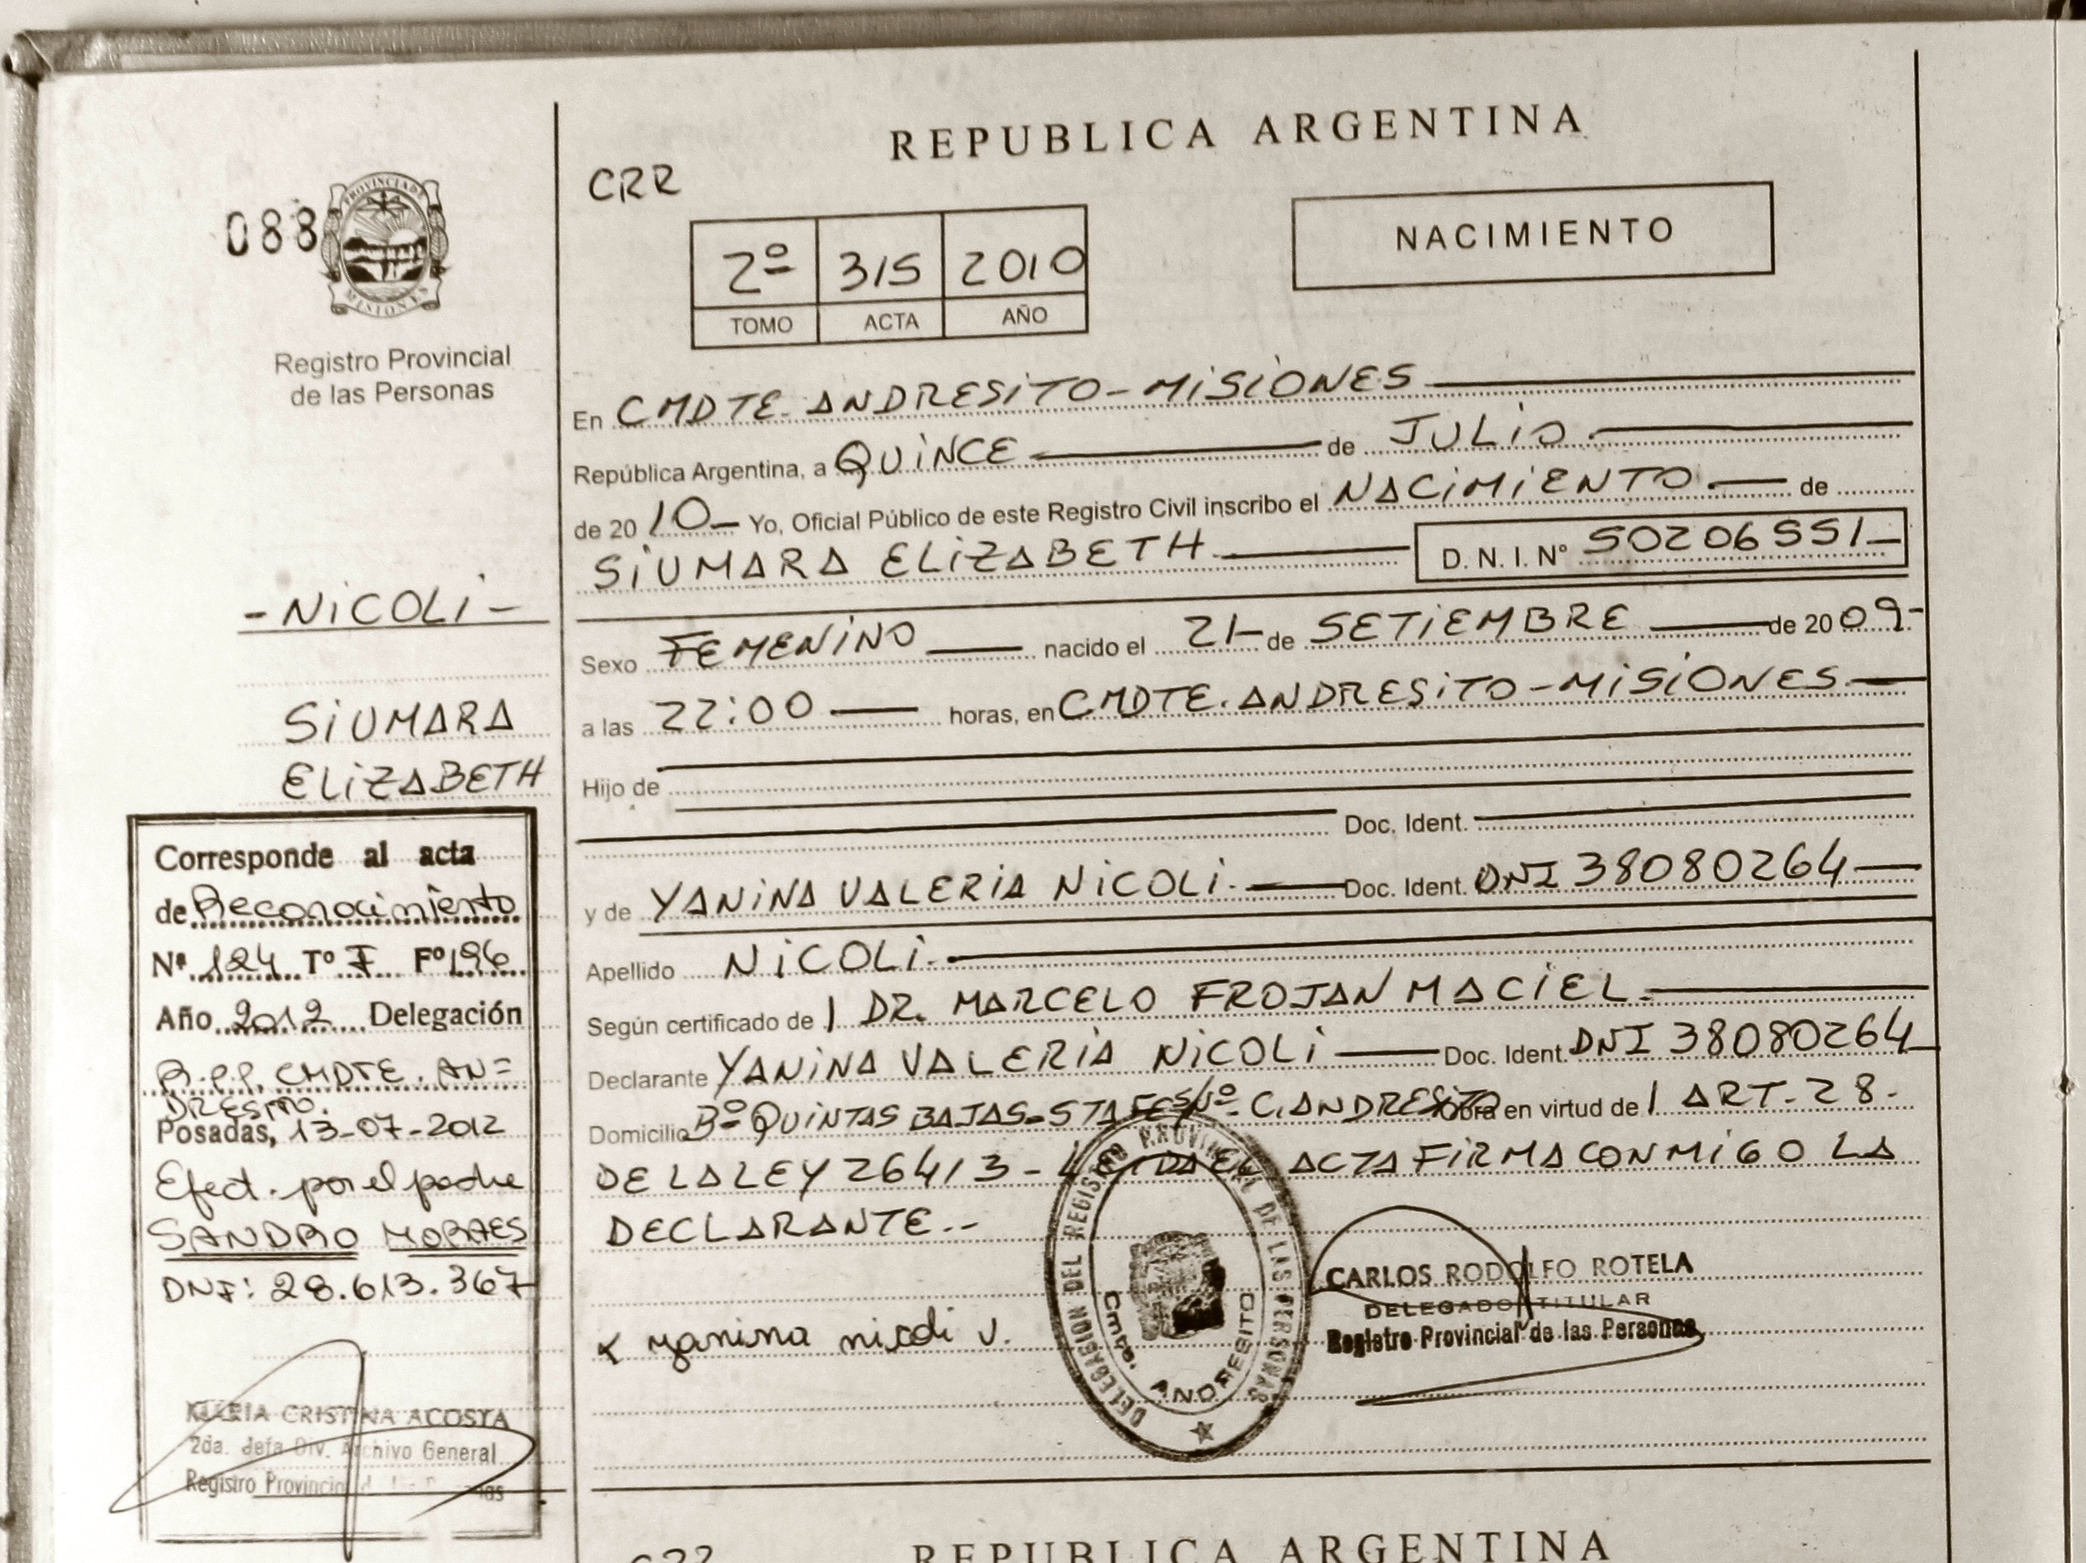 REPUBLICA ARGENTINA
CRR
088
PROVINCIA DE
MISIONES
Registro Provincial
de las Personas
2º 315 2010
TOMO ACTA AÑO
NACIMIENTO
En CMDTE. ANDRESITO-MISIONES
República Argentina, a QUINCE de JULIO
de 20 10 Yo, Oficial Público de este Registro Civil inscribo el NACIMIENTO de
SIUMARA ELIZABETH D. N. I. Nº 50206551
Sexo FEMENINO nacido el 21 de SETIEMBRE de 20 09
a las 22:00 horas, en CMDTE. ANDRESITO-MISIONES
Hijo de
Doc. Ident.
y de YANINA VALERIA NICOLI. Doc. Ident. DNI 38080264
Apellido NICOLI.
Según certificado de DR. MARCELO FROJAN MACIEL.
Declarante YANINA VALERIA NICOLI Doc. Ident. DNI 38080264
Domicilio Bº QUINTAS BAJAS-STA FE S/Nº- C. ANDRESITO Obra en virtud de ART. 28.
DE LA LEY 26413- ACTA FIRMA CONMIGO LA
DECLARANTE.--
yanina nicoli v.
DELEGASION DEL REGISTRO PROVINCIAL DE LAS PERSONAS
Cmte. ANDRESITO
CARLOS RODOLFO ROTELA
DELEGADO TITULAR
Registro Provincial de las Personas
-NICOLI-
SIUMARA
ELIZABETH
Corresponde al acta
de Reconocimiento
Nº 124 Tº I Fº 196
Año 2012 Delegación
R.P.P. CMDTE. AN=
DRESITO.
Posadas, 13-07-2012
Efect. por el padre
SANDRO MORAES
DNI: 28.613.367
MARIA CRISTINA ACOSTA
2da. Jefa Div. Archivo General
Registro Provincial de las Personas
REPUBLICA ARGENTINA